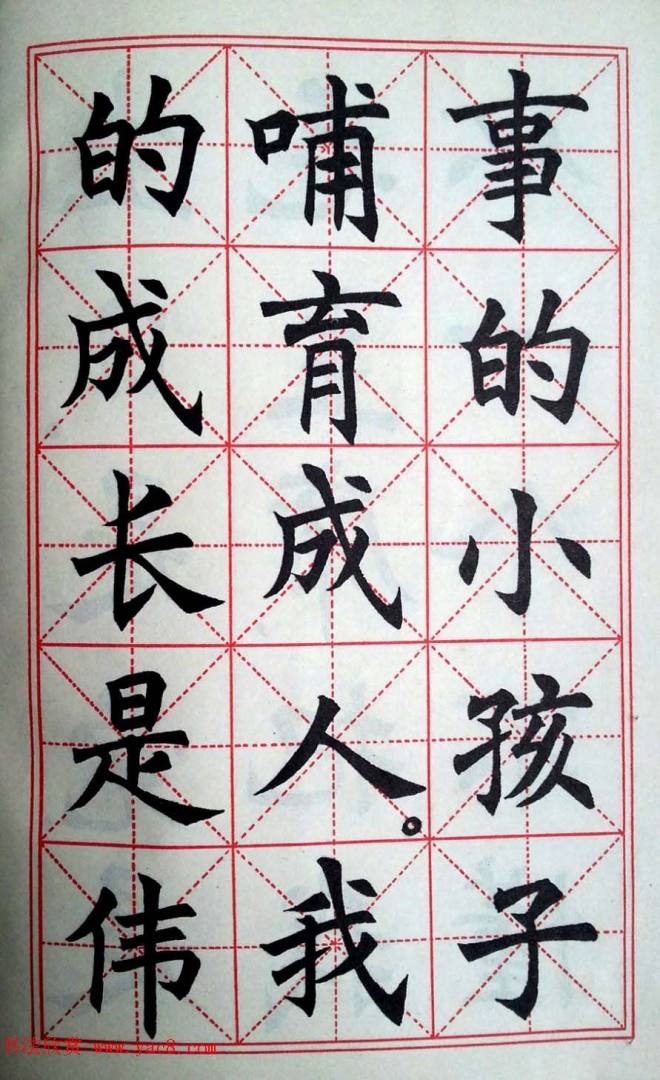 事的小孩子
哺育成人。我
的成长是伟
书法欣赏 www.yac8.com